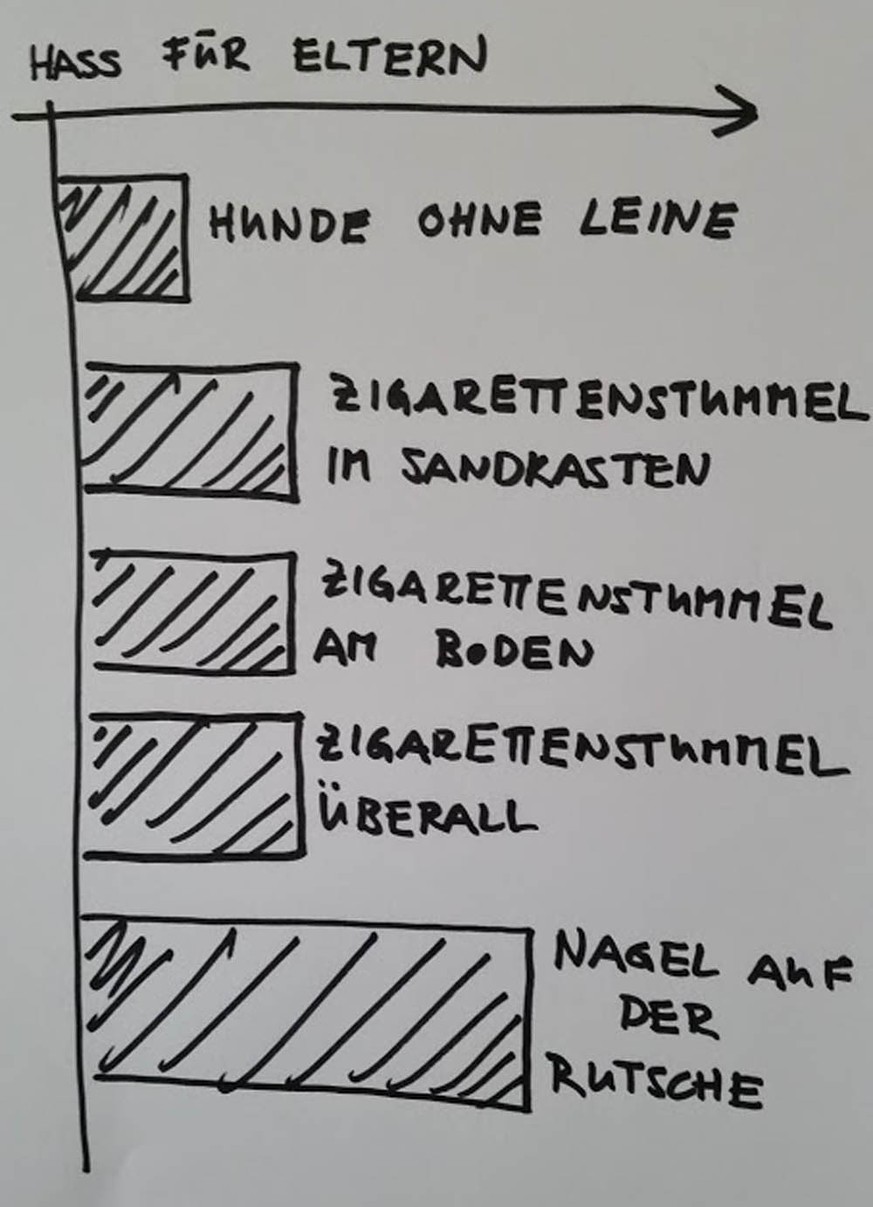 HASS FÜR ELTERN
HUNDE OHNE LEINE
ZIGARETTENSTUMMEL
IM SANDKASTEN
ZIGARETTENSTUMMEL
AM BODEN
ZIGARETTENSTUMMEL
ÜBERALL
NAGEL AUF
DER
RUTSCHE